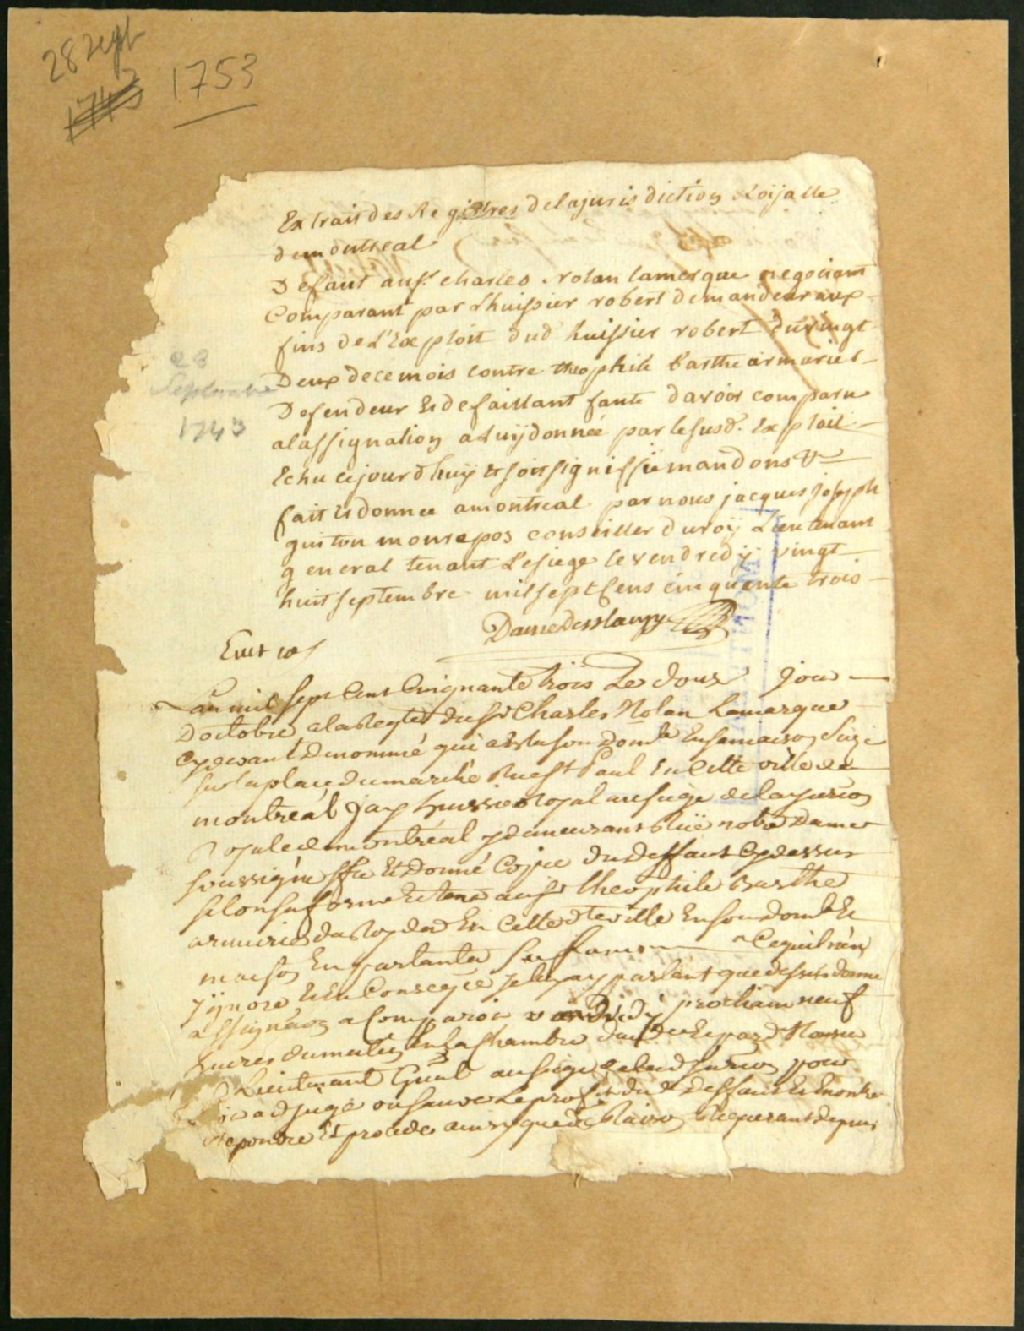 28 sept
1743
1753
Extrait des Registres de la jurisdiction Roijalle
de montreal
Defaut au sr. charles nolan lamarque negociant
Comparant par L'huissier robert demandeur aux
fins de L'Exploit dud huissier robert du vingt
Deux de ce mois contre theophile barthe armurier
Defendeur et defaillant faute d'avoir comparu
a lassignation a luy donnée par le susd. Exploit
Echu cejourd'huy et soit signiffié mandons &a
fait et donné a montreal par nous jacques joseph
guiton monrepos conseiller du roy Lieutenant
general tenant le siege le vendredy vingt
huit septembre mil sept cens cinquante trois
Danré De Blanzy
28
Septembre
1743
MONT
Lan mil sept Cent Cinquante trois Le douz jour
Doctobre a la Reqte du sr Charles Nolan Lamarque
cy devant denommé qui a Eslu son domle En sa maison size
sur la place du marché Rue st Paul En Cette ville de
montreal Jay huissier Royal au siege de la jurison
Royale de montreal y demeurant Rue notre Dame
soussigné Et donné Copie du deffaut Cy dessus
selon sa forme Et teneur au sr theophile Barthe
armurier du Roy En Cette de ville En son domle
maison En parlant a sa femme Ce quil n'en
ignore Et En Consequce Je luy ay parlant que dessus donné
assignaon a Comparoir vendredi prochain neuf
heures du matin En la Chambre Et par d Monsr
Lieutenant Genal au siege de lad jurison pour
adjugé ou sauve Le profit du d deffaut Et
Repondre Et proceder ainsy que de Raison Requerant depens